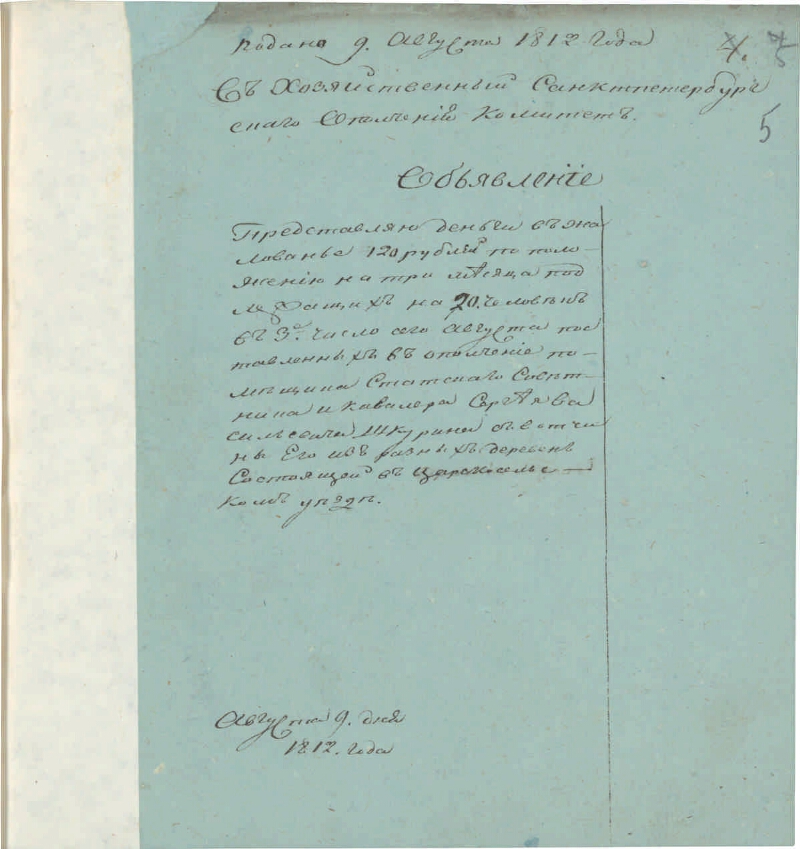 подано 9. Августа 1812 года
4. 5
Въ Хозяйственный Санктпетербург
скаго Ополченія Комитетъ.
5
Объявленіе
Представляю деньги въ жа
лованье 120 рублей по поло-
женію на три месяца под
лежащихъ на 20. человѣкъ
въ 3е. число сего Августа пос
тавленныхъ въ ополченіе по-
мѣщика Статскаго Совѣт-
ника и Кавалера Сергѣя Ва
сильевича Шкурина съ вотчи
ны Его изъ разныхъ деревень
Состоящей въ Царскосельс-
комъ уѣздѣ.
Августа 9. дня
1812. года